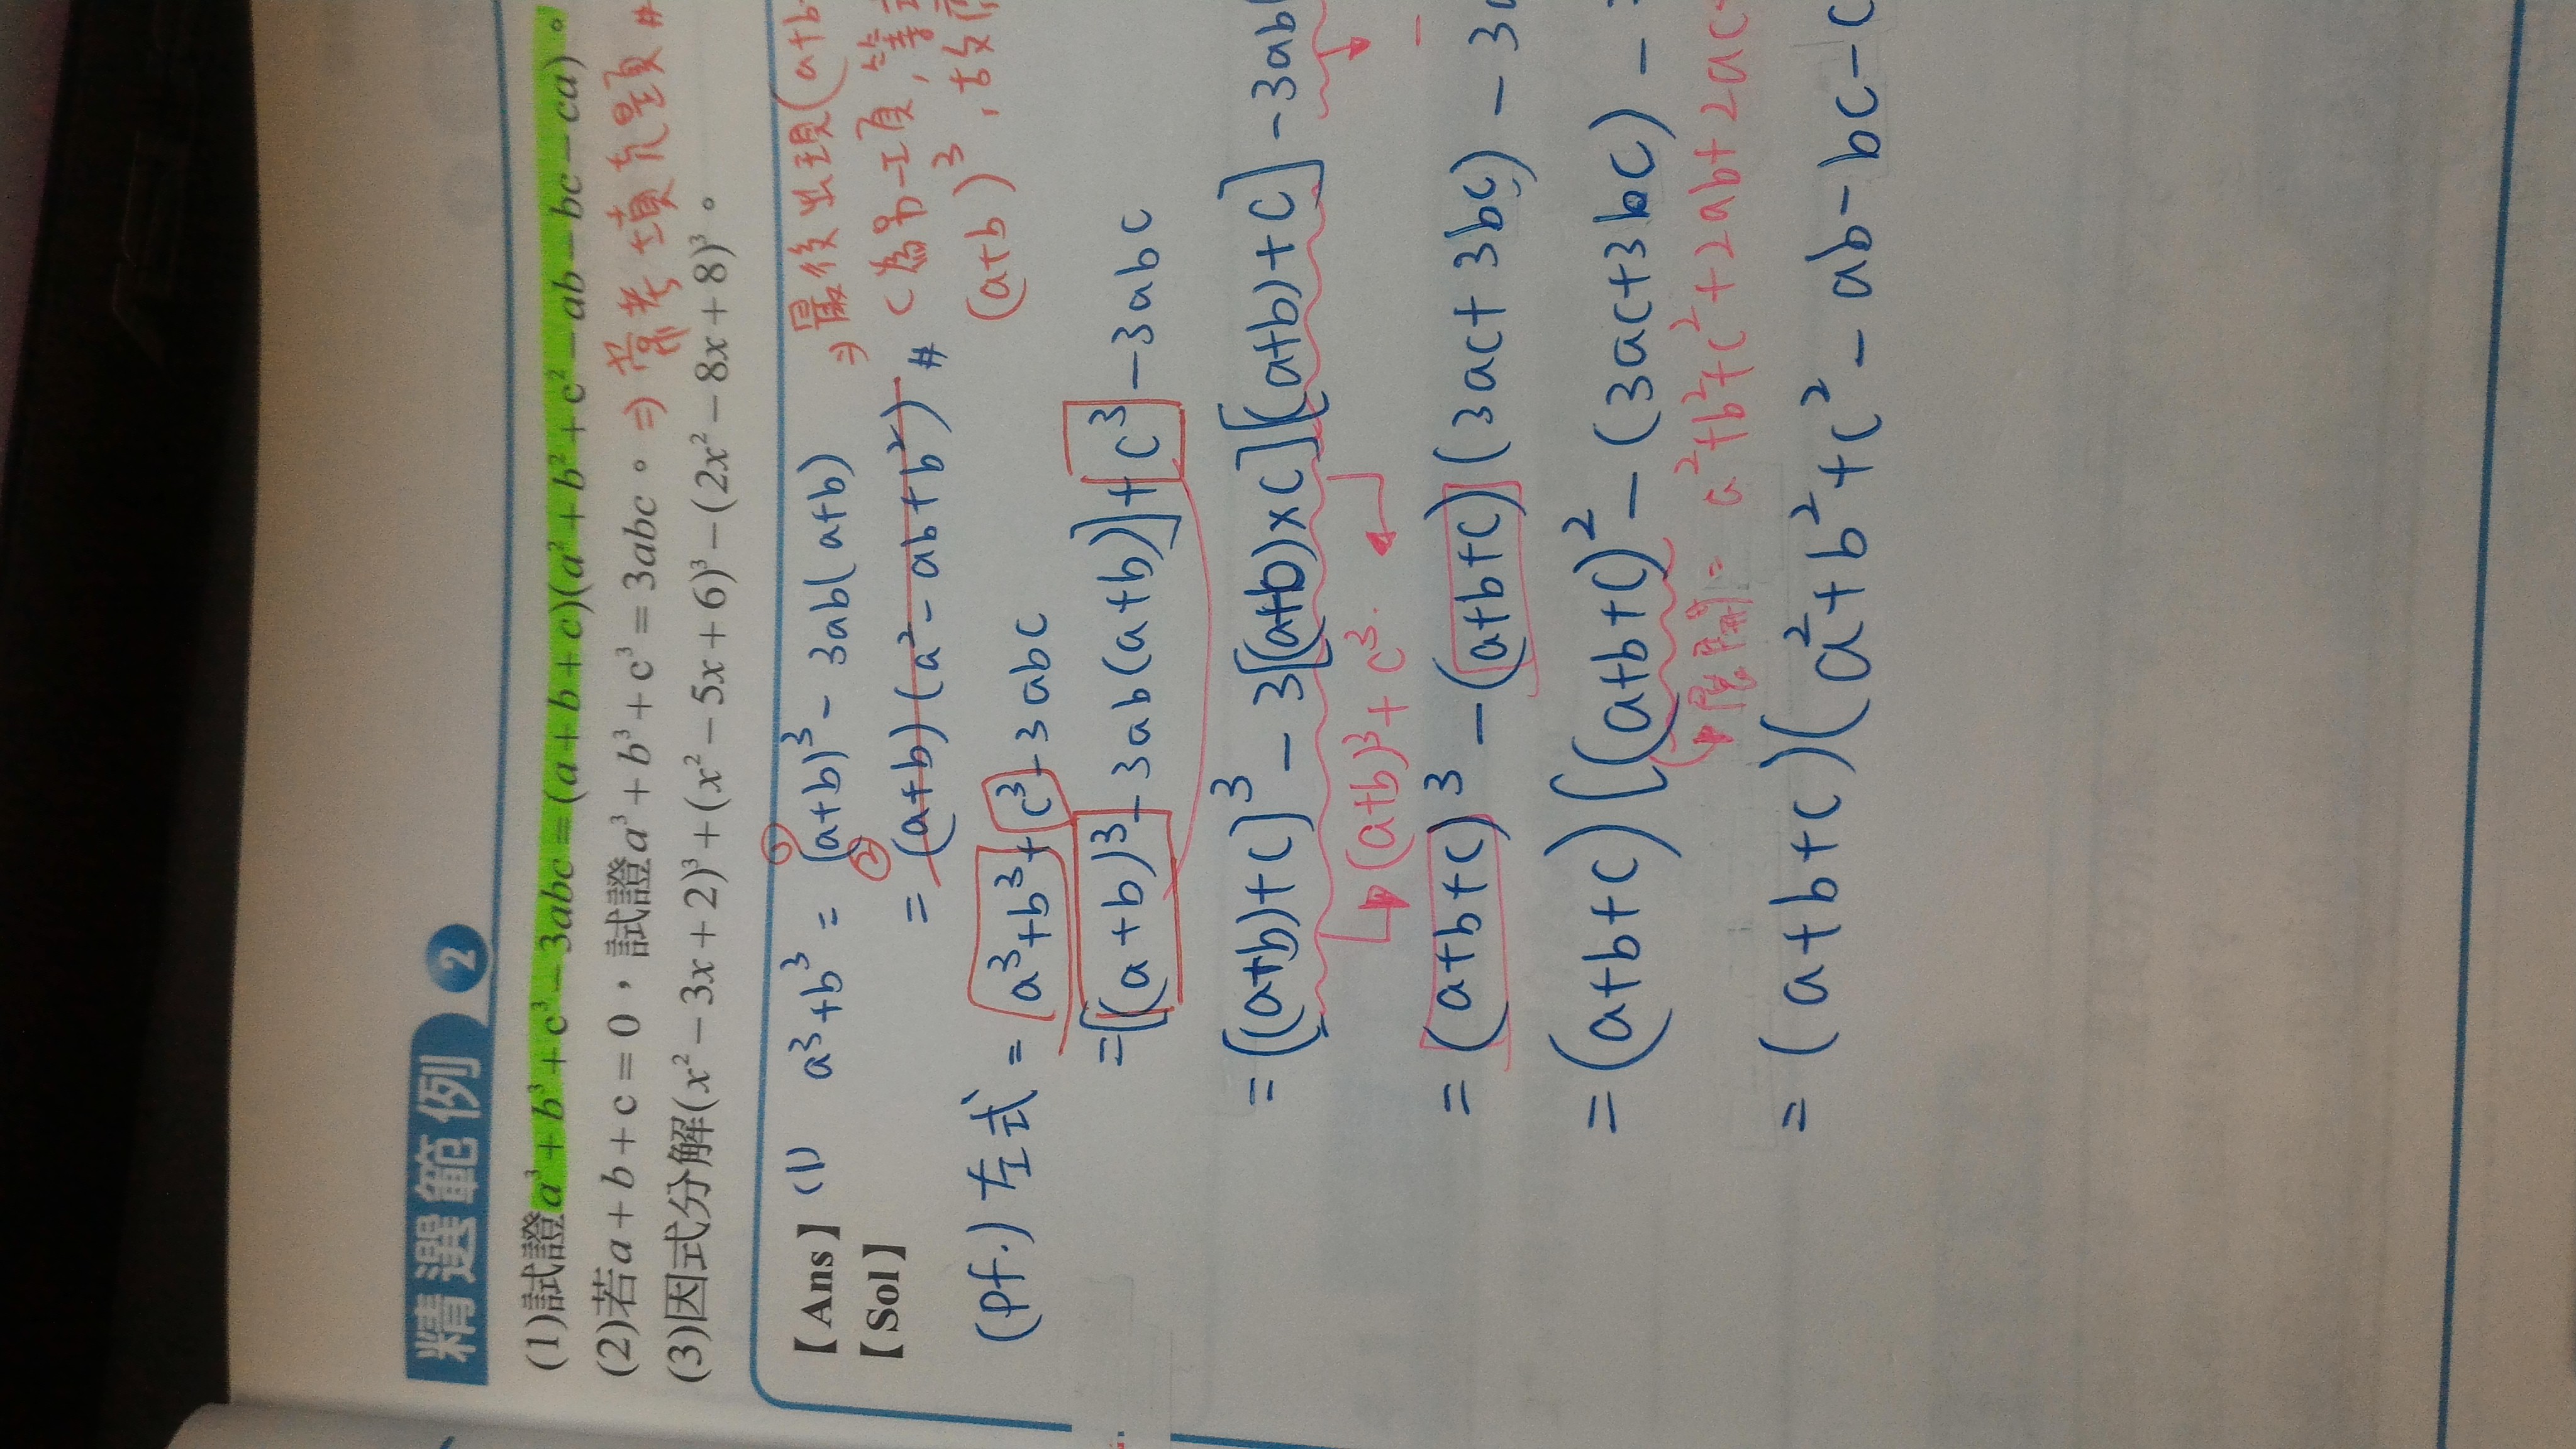 精選範例 2
(1)試證a³+b³+c³-3abc=(a+b+c)(a²+b²+c²-ab-bc-ca)。
(2)若a+b+c=0,試證a³+b³+c³=3abc。⇒常考填充題#
(3)因式分解(x²-3x+2)³+(x²-5x+6)³-(2x²-8x+8)³。
【Ans】(1) a³+b³ = ①(a+b)³-3ab(a+b) ⇒最後出現(a+b
【Sol】 = ②(a+b)(a²-ab+b²)# c為另一項,
(a+b)³,故
(pf.) 左式 = a³+b³+c³-3abc
=[(a+b)³-3ab(a+b)]+c³-3abc
=[(a+b)+c]³-3[(a+b)×c][(a+b)+c]-3ab
(a+b)³+c³.
=(a+b+c)³-(a+b+c)(3ac+3bc)-3a
=(a+b+c)[(a+b+c)²-(3ac+3bc)-
= a²+b²+c²+2ab+2ac
=(a+b+c)(a²+b²+c²-ab-bc-c